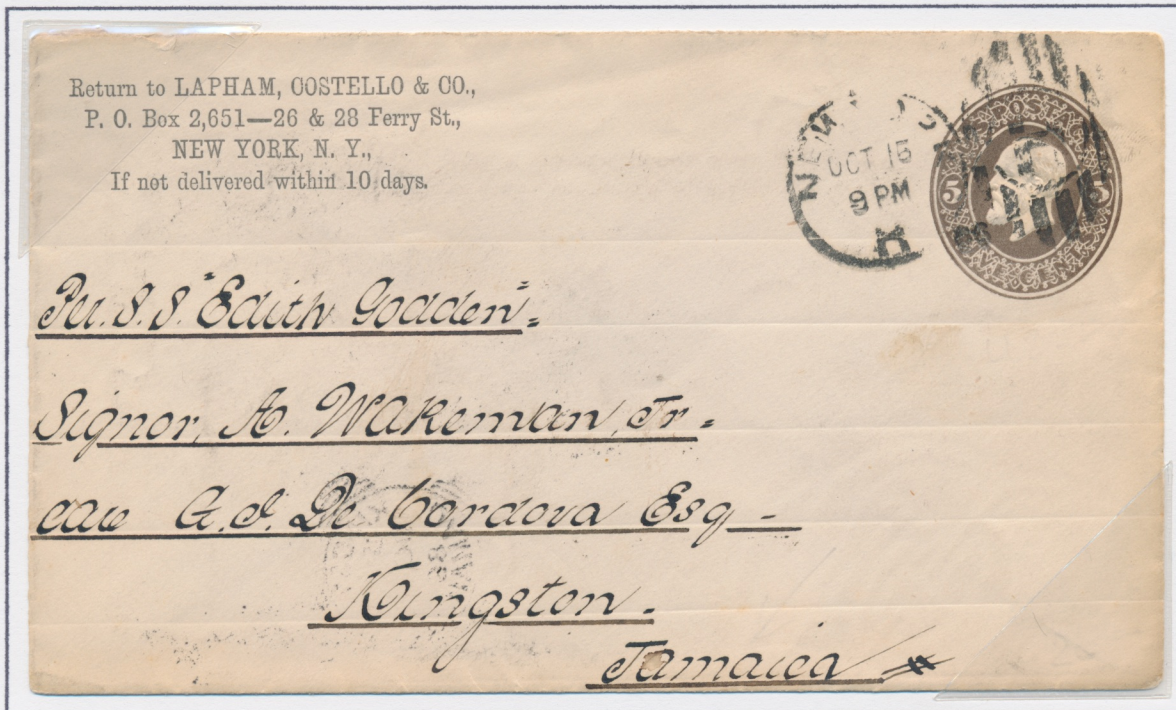 Return to LAPHAM, COSTELLO & CO.,
P. O. Box 2,651—26 & 28 Ferry St.,
NEW YORK, N. Y.,
If not delivered within 10 days.
NEW YO
OCT 15
9 PM
POSTAGE
5 5
FIVE CENTS
Per. S. S. "Edith Godden" =
Signor, A. Wakeman, Jr =
care A. J. De Cordova Esq —
Kingston.
Jamaica